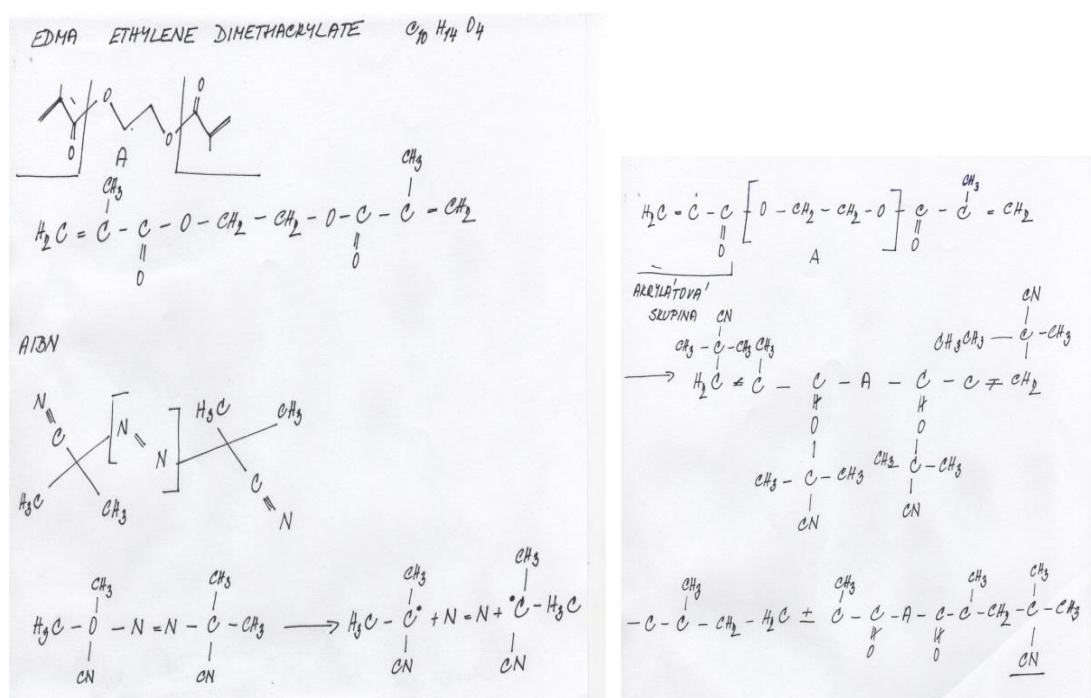 EDMA ETHYLENE DIMETHACRYLATE C10 H14 O4
O
O
O
O
A
CH3
CH3
H2C = C - C - O - CH2 - CH2 - O - C - C = CH2
O
O
AIBN
N
C
H3C
CH3
N = N
H3C
CH3
C
N
CH3
CH3
CH3
CH3
H3C - C - N = N - C - CH3 → H3C - C• + N = N + •C - H3C
CN
CN
CN
CN
CH3
H2C = C - C [ O - CH2 - CH2 - O ] C - C = CH2
O
A
O
AKRYLÁTOVÁ
SKUPINA
CN
CN
CH3 - C - CH3 CH3
CH3CH3 - C - CH3
→ H2C = C - C - A - C - C = CH2
O
O
CH3 - C - CH3
CH3 - C - CH3
CN
CN
CH3
CH3
CH3
CH3
- C - C - CH2 - H2C ± C - C - A - C - C - CH2 - C - CH3
O
O
CN